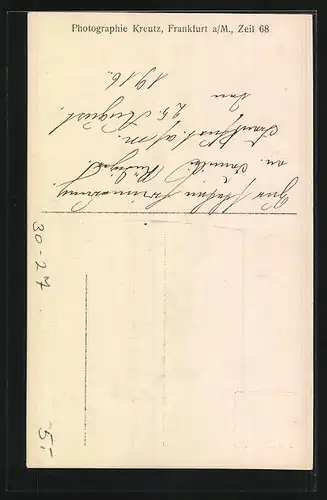 Photographie Kreutz, Frankfurt a/M., Zeil 68
Zur steten Erinnerung
an Familie
Frankfurt a/M.
den
25. August.
1916.
30-27
5,-